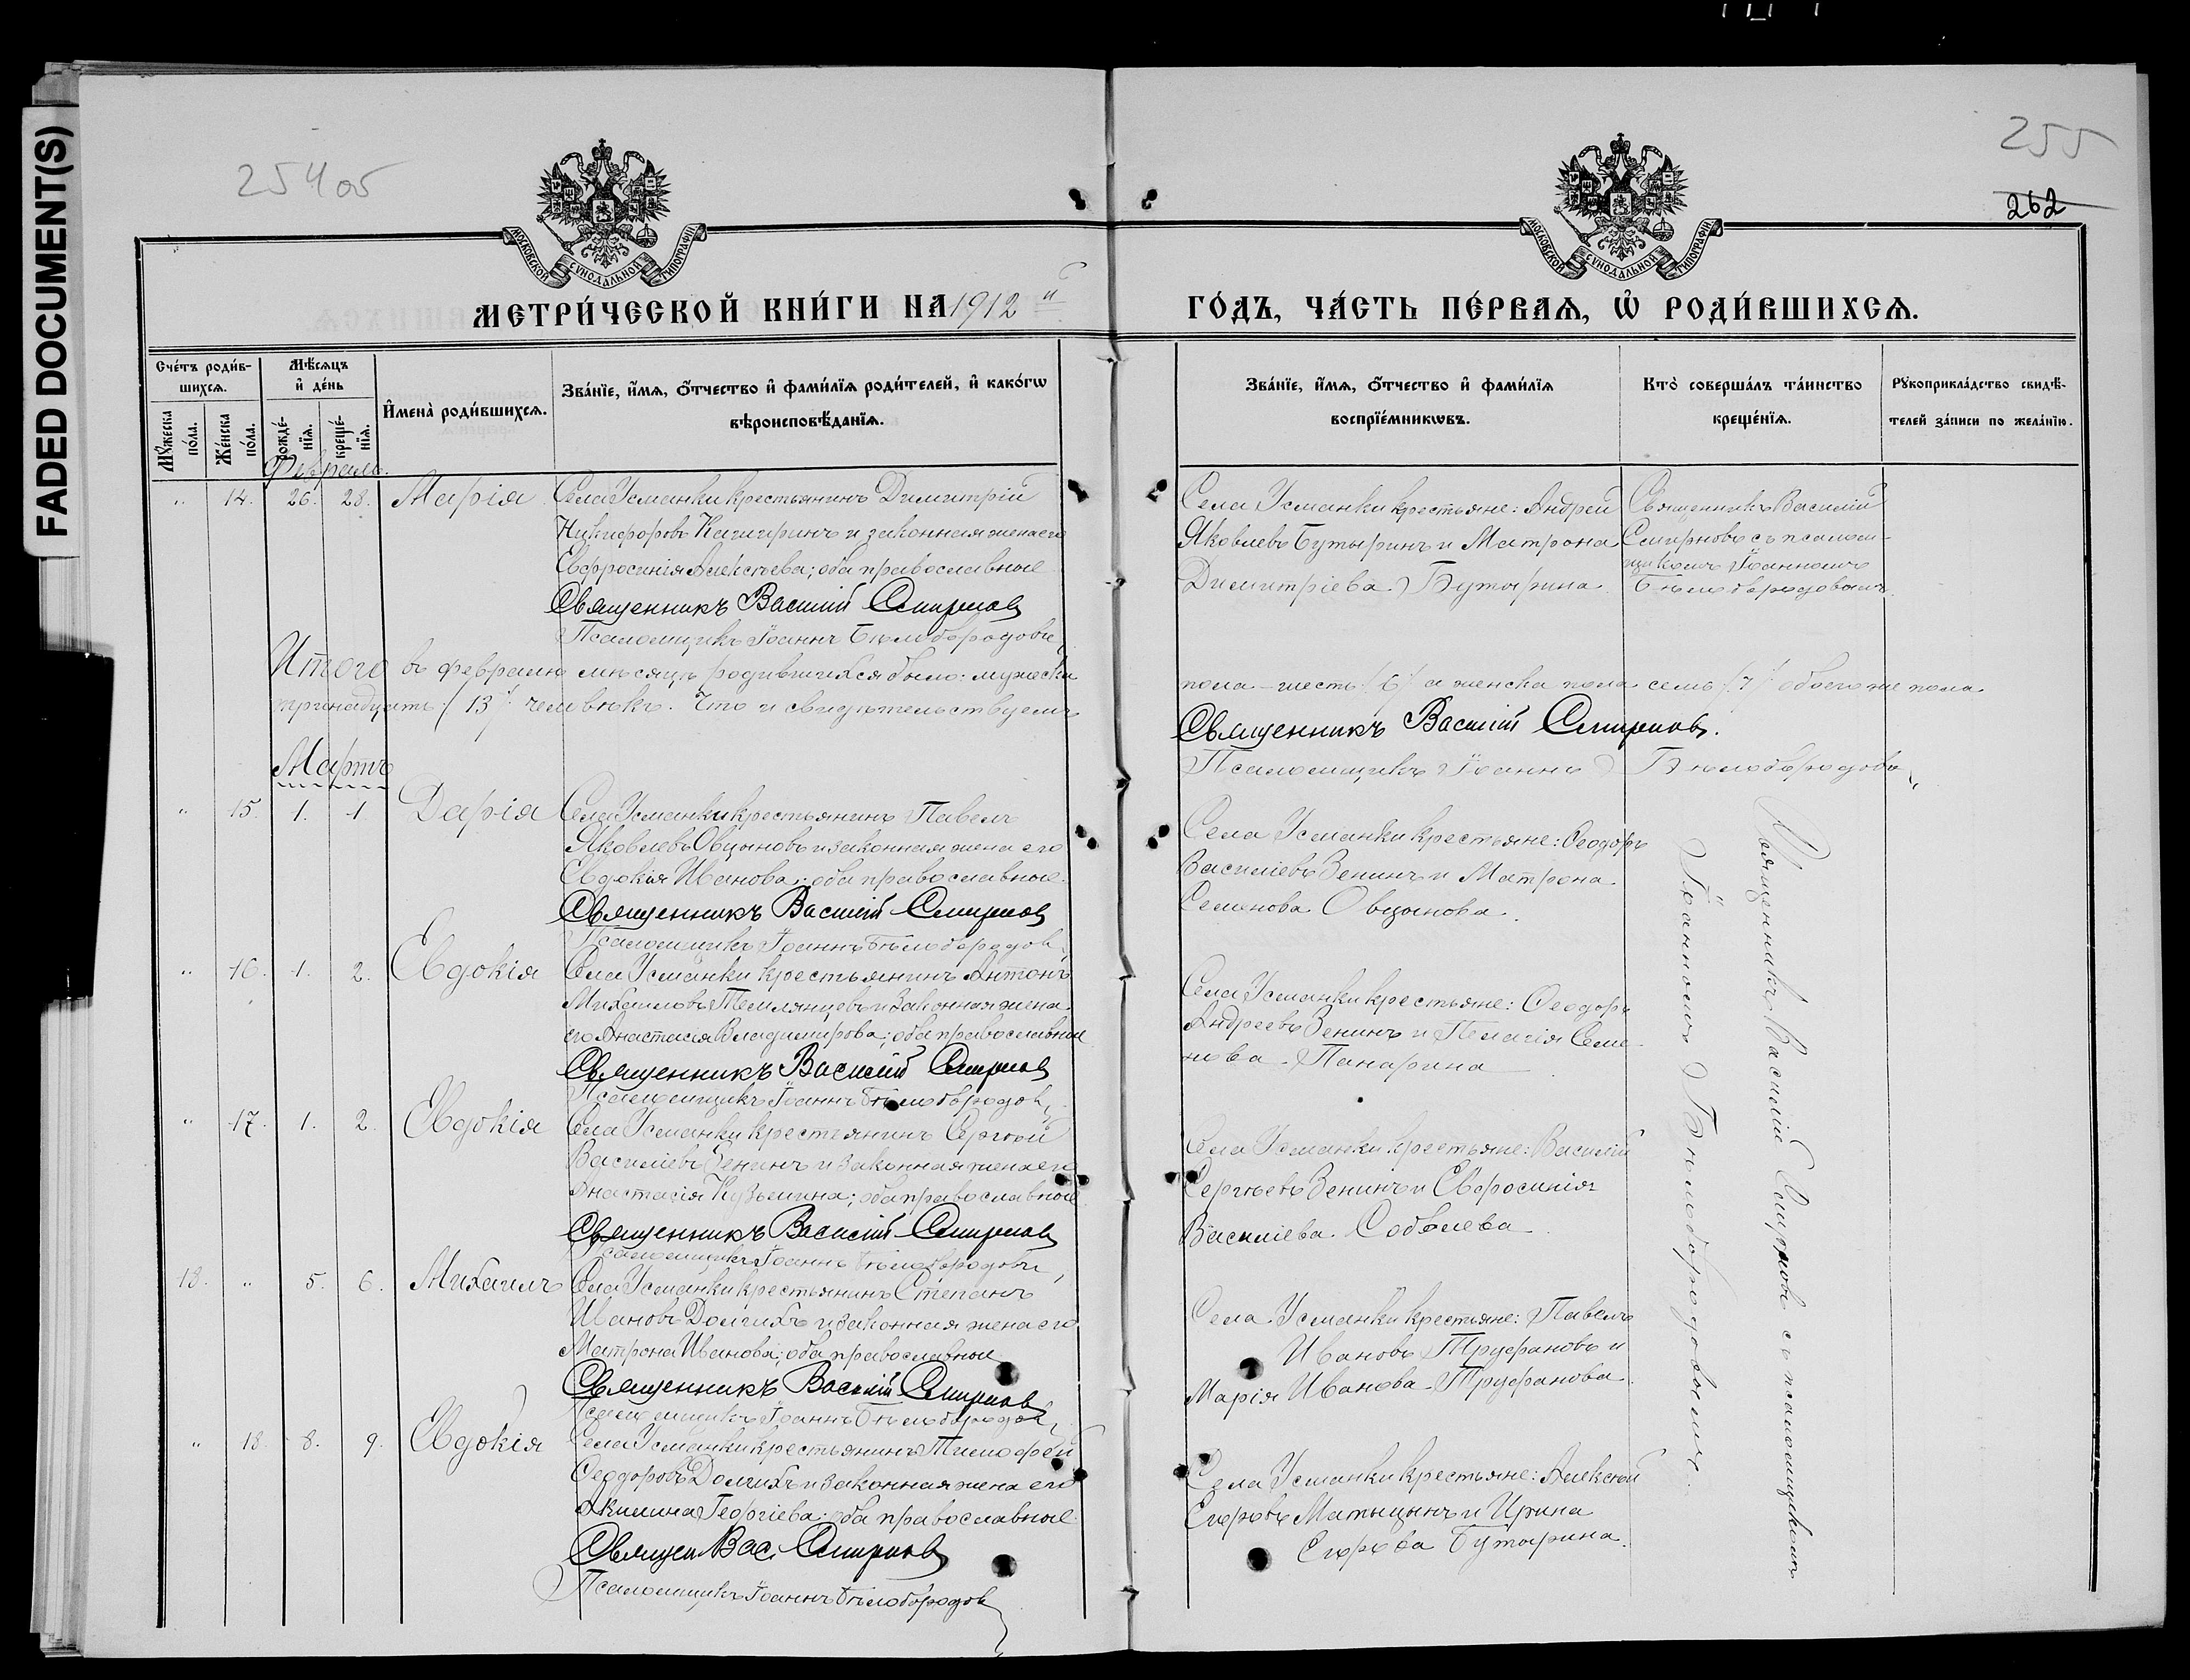 FADED DOCUMENT(S)
254об
255
262
МОСКОВСКОЙ СУНОДАЛЬНОЙ ТИПОГРАФІИ
МОСКОВСКОЙ СУНОДАЛЬНОЙ ТИПОГРАФІИ
МЕТРИ́ЧЕСКОЙ КНИ́ГИ НА 1912 й
ГО́ДЪ, ЧА́СТЬ ПЕ́РВАѦ, Ѡ҆ РОДИ́ВШИХСѦ.
Сче́тъ роди́в-
шихсѧ.
Мѣ́сѧцъ
и҆ де́нь
И҆мена̀ роди́вшихсѧ.
Зва́нїе, и҆́мѧ, ѻ҆́тчество и҆ фами́лїѧ роди́телей, и҆ како́гѡ
вѣроисповѣ́данїѧ.
Мꙋ́жеска
по́ла.
Же́нска
по́ла.
рожде́-
нїѧ.
креще́-
нїѧ.
Зва́нїе, и҆́мѧ, ѻ҆́тчество и҆ фами́лїѧ
воспрїе́мникѡвъ.
Кто̀ соверша́лъ та́инство
креще́нїѧ.
Рꙋкоприкла́дство свидѣ́-
телей за́писи по жела́нїю.
Февраль.
" 14. 26. 28. Марія
Села Усманки крестьянинъ Димитрій
Никифоровъ и законная жена его
Евфросинія Алексѣева; оба православные
Священникъ Василій Смирновъ
Псаломщикъ Іоаннъ Бѣлобородовъ
Села Усманки крестьяне: Андрей
Яковлевъ Бутыринъ и Матрона
Димитріева Бутырина
Священникъ Василій
Смирновъ съ псалом-
щикомъ Іоанномъ
Бѣлобородовымъ.
Итого въ февралѣ мѣсяцѣ родившихся было: мужеска
пола – шесть /6/ а женска пола семь /7/ обоего же пола
тринадцать /13/ человѣкъ. Что и свидѣтельствуемъ
Священникъ Василій Смирновъ.
Псаломщикъ Іоаннъ Бѣлобородовъ
Мартъ
" 15. 1. 1. Дарія
Села Усманки крестьянинъ Павелъ
Яковлевъ Овцыновъ и законная жена его
Евдокія Иванова; оба православные.
Священникъ Василій Смирновъ
Псаломщикъ Іоаннъ Бѣлобородовъ
Села Усманки крестьяне: Ѳеодоръ
Василіевъ Зенинъ и Матрона
Семенова Овцынова.
" 16. 1. 2. Евдокія
Села Усманки крестьянинъ Антонъ
Михаиловъ Темлянцевъ и законная жена
его Анастасія Владимирова; оба православные
Священникъ Василій Смирновъ
Псаломщикъ Іоаннъ Бѣлобородовъ
Села Усманки крестьяне: Ѳеодоръ
Андреевъ Зенинъ и Пелагія Семе-
нова Панарина
" 17. 1. 2. Евдокія
Села Усманки крестьянинъ Сергѣй
Василіевъ Зенинъ и законная жена его
Анастасія Кузьмина; оба православные
Священникъ Василій Смирновъ
Псаломщикъ Іоаннъ Бѣлобородовъ
Села Усманки крестьяне: Василій
Сергѣевъ Зенинъ и Евфросинія
Василіева Соболева
18. " 5. 6. Михаилъ
Села Усманки крестьянинъ Степанъ
Ивановъ Долгихъ и законная жена его
Матрона Иванова; оба православные
Священникъ Василій Смирновъ
Псаломщикъ Іоаннъ Бѣлобородовъ
Села Усманки крестьяне: Павелъ
Ивановъ Труфановъ и
Марія Иванова Труфанова.
" 18. 8. 9. Евдокія
Села Усманки крестьянинъ Тимофей
Ѳеодоровъ Долгихъ и законная жена его
Акилина Георгіева; оба православные
Священ Вас. Смирновъ
Псаломщикъ Іоаннъ Бѣлобородовъ
Села Усманки крестьяне: Алексѣй
Егоровъ Матыцынъ и Ирина
Егорова Бутырина.
Священникъ Василій Смирновъ съ псаломщикомъ
Іоанномъ Бѣлобородовымъ.